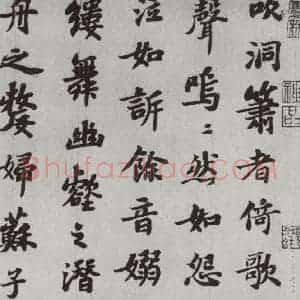 吹洞簫者倚歌
聲嗚〻然如怨
泣如訴餘音嫋
縷舞幽壑之潛
舟之嫠婦蘇子
Shufazidao.com